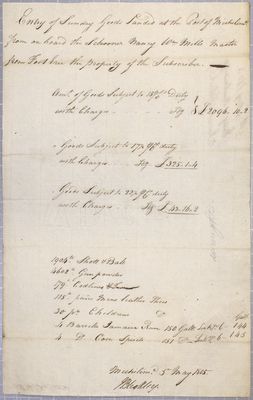 Entry of Sundry Goods Landed at the Port of
from on board the Schooner Nancy Wm Mills Master
from the property of the Subscriber.
Amt. of Goods Subject to Duty
with Charges £2096.10.2
Goods Subject to 17½ duty
with Charges £325.1.4
Goods Subject to 22½ duty
with Charges £43.16.2
1904 lb Shott & Ball
4602 lb Gunpowder
79 Codlines &
115 pairs Mens leather Shoes
30 pr Childrens Do
Galls
4 Barrels Jamaica Rum 150 Galls 6 - 144
4 D. Corn Spirit 151 D 6 - 145
5 May 1815